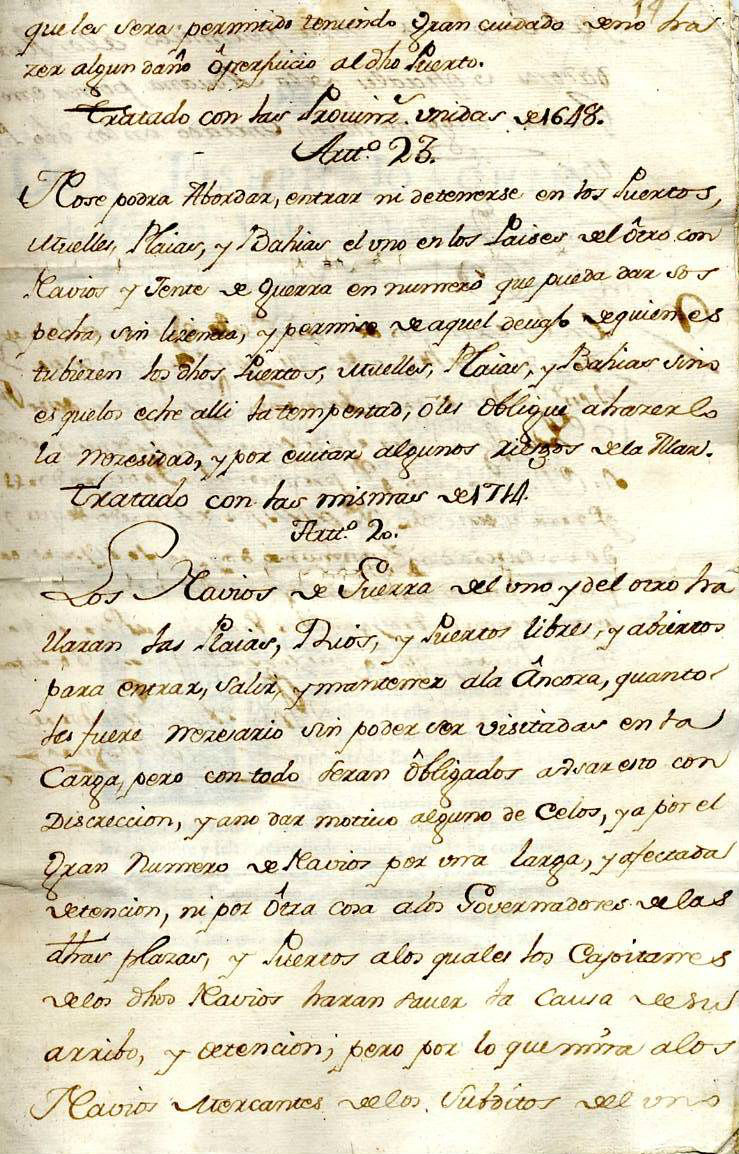 que les sera permitido teniendo gran cuidado de no ha
zer algun daño ô perjuicio al dho Puerto.
Tratado con las Provinz.s unidas de 1648.
Artt.o 23.
No se podra Abordar, entrar ni detenerse en los Puertos,
Muelles, Plaias, y Bahias el uno en los Paises del Ôtro con
Navios y Jente de Guerra en numero que pueda dar sos
pecha, sin lizencia, y permiso de aquel de quien es
tubieren los dhos Puertos, Muelles, Plaias, y Bahias sino
es que los eche alli la tempestad, ô les Obligue a hazerlo
la nezesidad, y por evitar algunos riesgos de la Mar.
Tratado con las mismas de 1714.
Artt.o 20.
Los Navios de Guerra del uno y del otro ha
llaran las Plaias, Rios, y Puertos libres, y abiertos
para entrar, salir, y mantener a la Âncora, quanto
les fuere Nezesario sin poder ser visitadas en la
Carga, pero con todo seran Ôbligados a usar esto con
Discreccion, y a no dar motivo alguno de Celos, ya por el
gran Numero de Navios por una larga, y afectada
detencion, ni por Ôtra cosa a los Governadores de las
dhas plazas, y Puertos a los quales los Capitanes
de los dhos Navios haran saver la Causa de su
arribo, y detencion; pero por lo que mira a los
Navios Mercantes de los Subditos del uno